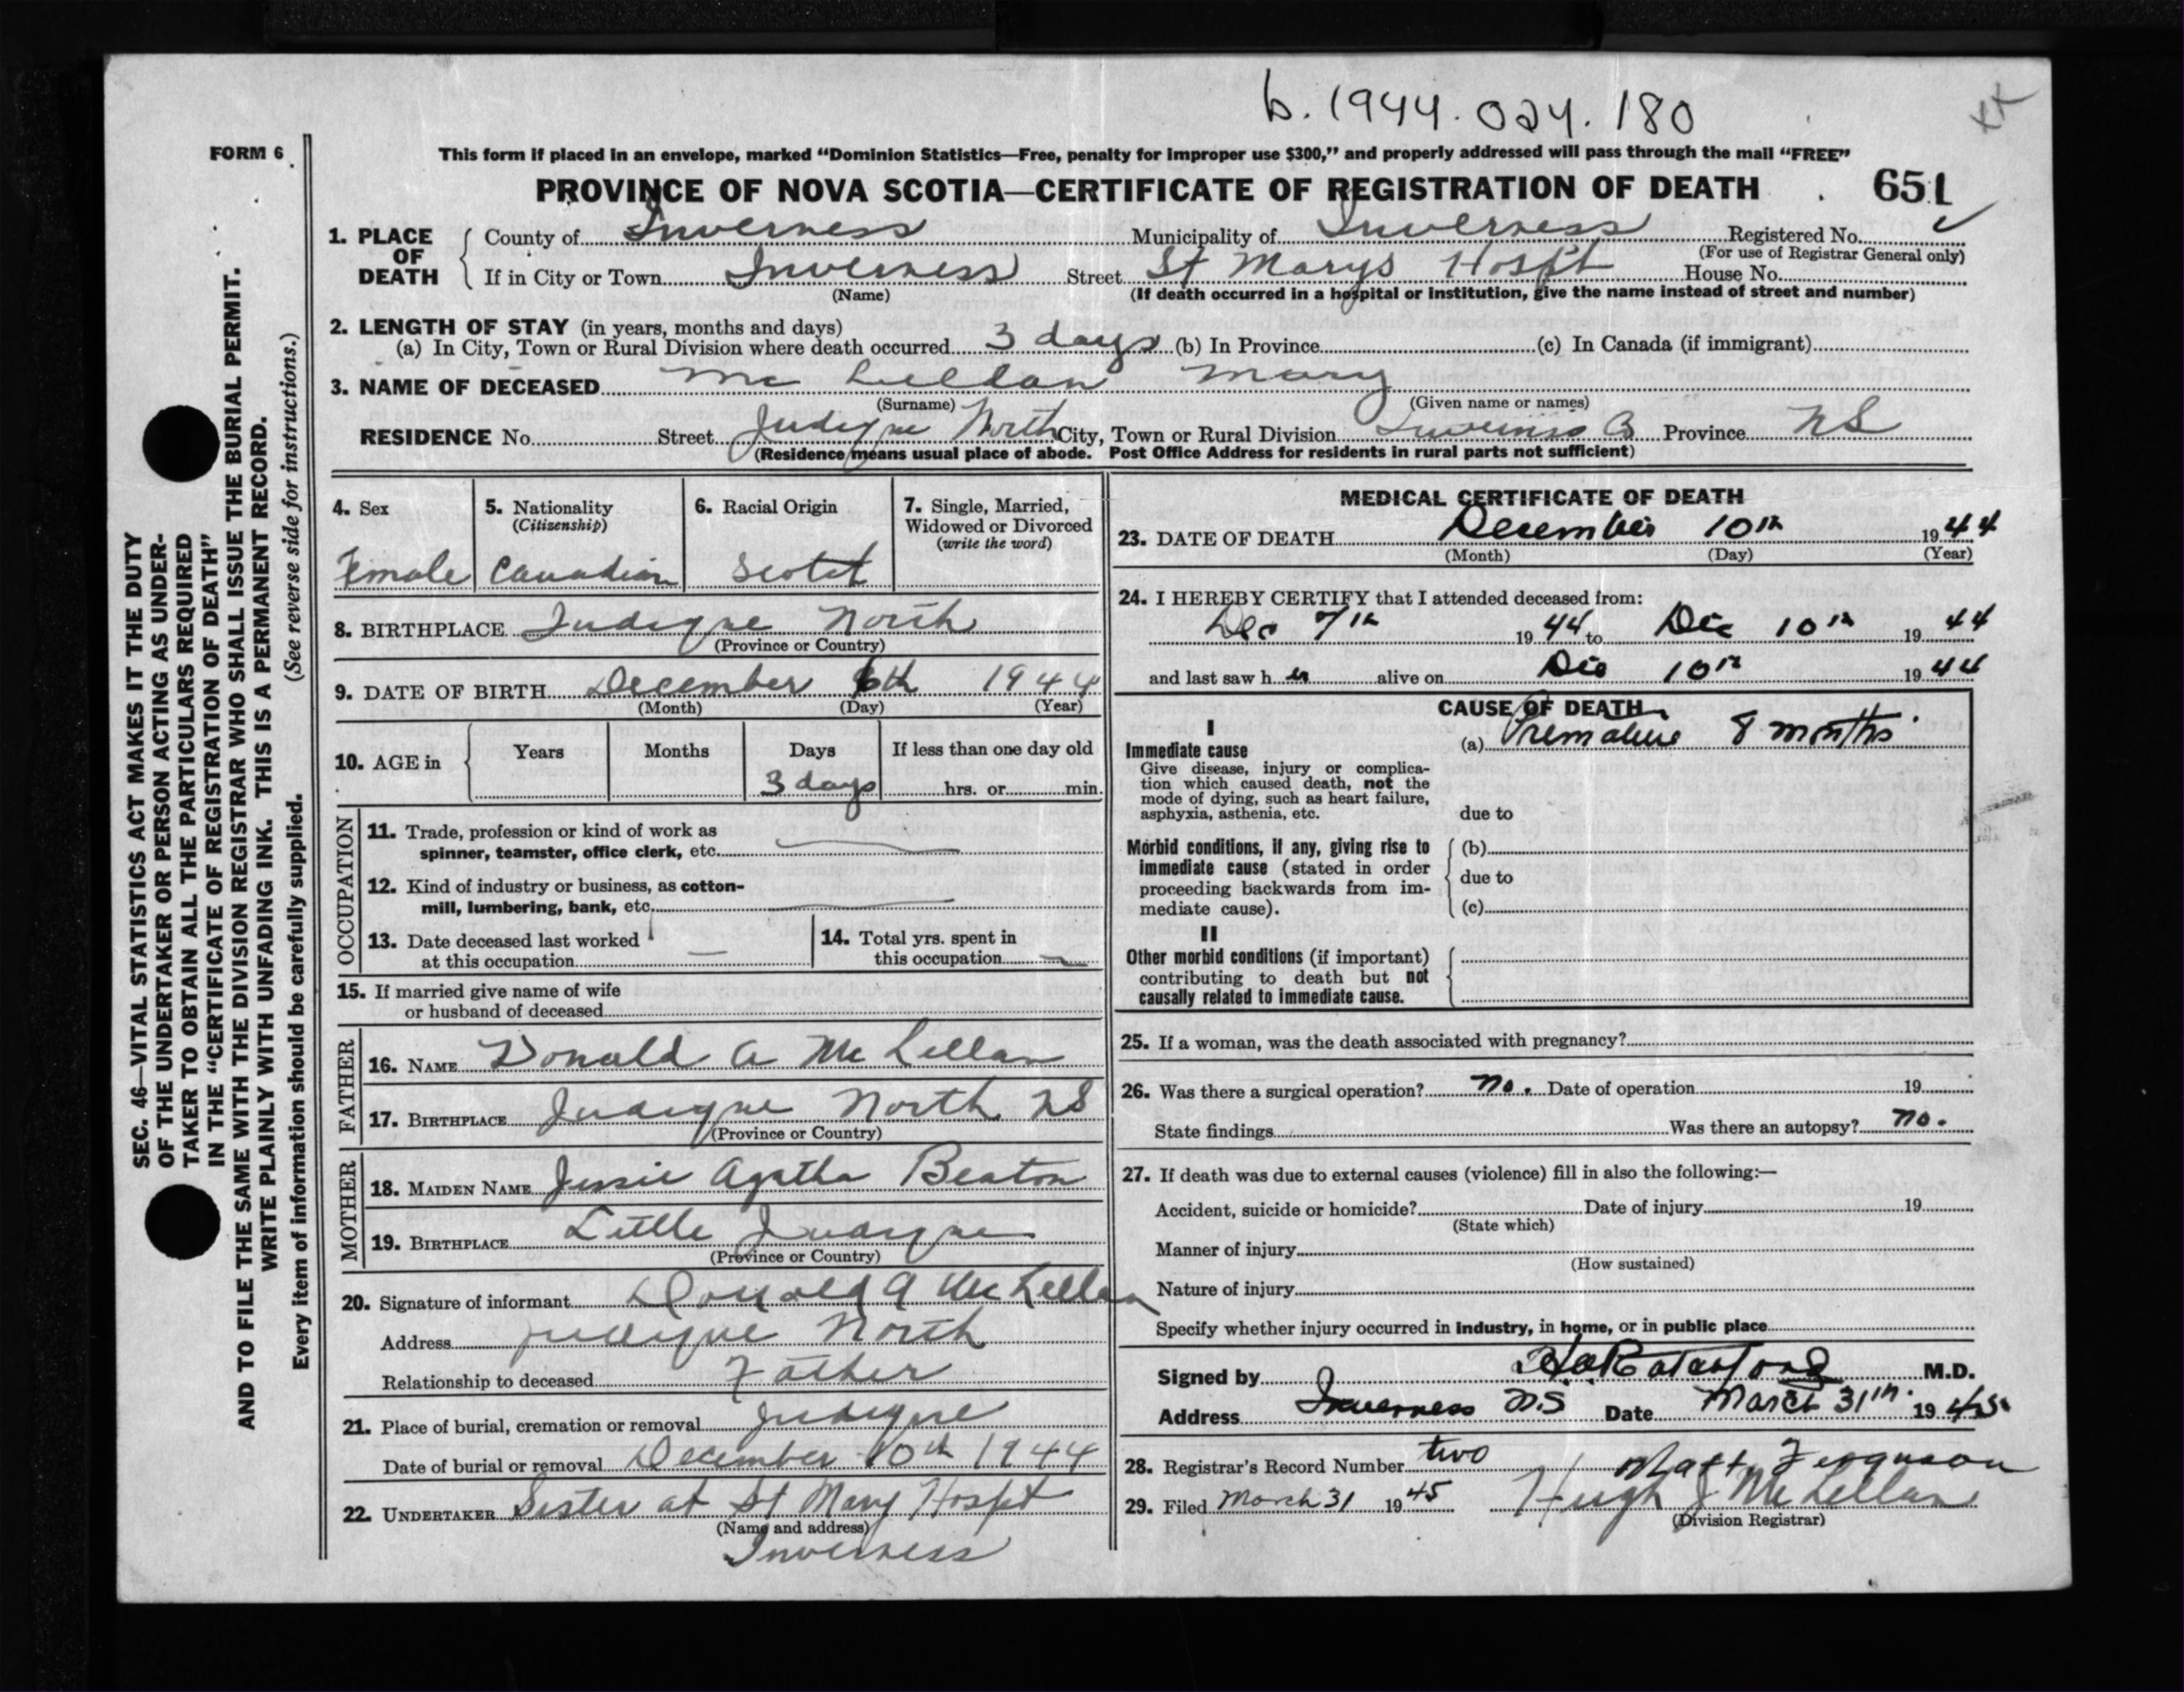 b. 1944. 024. 180
FORM 6
This form if placed in an envelope, marked “Dominion Statistics—Free, penalty for improper use $300,” and properly addressed will pass through the mail “FREE”
PROVINCE OF NOVA SCOTIA—CERTIFICATE OF REGISTRATION OF DEATH 651
1. PLACE OF DEATH
County of Inverness Municipality of Inverness Registered No.
(For use of Registrar General only)
If in City or Town Inverness Street St Marys Hospt House No.
(Name) (If death occurred in a hospital or institution, give the name instead of street and number)
2. LENGTH OF STAY (in years, months and days)
(a) In City, Town or Rural Division where death occurred 3 days (b) In Province (c) In Canada (if immigrant)
3. NAME OF DECEASED Mc Lellan Mary
(Surname) (Given name or names)
RESIDENCE No. Street Judique North City, Town or Rural Division Inverness Province NS
(Residence means usual place of abode. Post Office Address for residents in rural parts not sufficient)
4. Sex
Female
5. Nationality
(Citizenship)
Canadian
6. Racial Origin
Scotch
7. Single, Married,
Widowed or Divorced
(write the word)
8. BIRTHPLACE Judique North
(Province or Country)
9. DATE OF BIRTH December 6th 1944
(Month) (Day) (Year)
10. AGE in Years Months Days If less than one day old
3 days hrs. or min.
OCCUPATION
11. Trade, profession or kind of work as
spinner, teamster, office clerk, etc.
12. Kind of industry or business, as cotton-
mill, lumbering, bank, etc.
13. Date deceased last worked
at this occupation
14. Total yrs. spent in
this occupation
15. If married give name of wife
or husband of deceased
FATHER
16. NAME Donald A Mc Lellan
17. BIRTHPLACE Judique North NS
(Province or Country)
MOTHER
18. MAIDEN NAME Jessie Agatha Beaton
19. BIRTHPLACE Little Judique
(Province or Country)
20. Signature of informant Donald A Mc Lellan
Address Judique North
Relationship to deceased Father
21. Place of burial, cremation or removal Judique
Date of burial or removal December 10th 1944
22. UNDERTAKER Sister at St Mary Hospt
(Name and address)
Inverness
MEDICAL CERTIFICATE OF DEATH
23. DATE OF DEATH December 10th 1944
(Month) (Day) (Year)
24. I HEREBY CERTIFY that I attended deceased from:
Dec 7th 1944 to Dec 10th 1944
and last saw h er alive on Dec 10th 1944
CAUSE OF DEATH
I
Immediate cause (a) Premature 8 months
Give disease, injury or complica-
tion which caused death, not the
mode of dying, such as heart failure,
asphyxia, asthenia, etc. due to
Morbid conditions, if any, giving rise to (b)
immediate cause (stated in order due to
proceeding backwards from im-
mediate cause). (c)
II
Other morbid conditions (if important)
contributing to death but not
causally related to immediate cause.
25. If a woman, was the death associated with pregnancy?
26. Was there a surgical operation? No. Date of operation 19
State findings Was there an autopsy? No.
27. If death was due to external causes (violence) fill in also the following:—
Accident, suicide or homicide? Date of injury 19
(State which)
Manner of injury
(How sustained)
Nature of injury
Specify whether injury occurred in industry, in home, or in public place
Signed by M.D.
Address Inverness N.S Date March 31th. 1945.
28. Registrar's Record Number two
Matt. Ferguson
29. Filed March 31 1945 Hugh J McLellan
(Division Registrar)
SEC. 46—VITAL STATISTICS ACT MAKES IT THE DUTY
OF THE UNDERTAKER OR PERSON ACTING AS UNDER-
TAKER TO OBTAIN ALL THE PARTICULARS REQUIRED
IN THE “CERTIFICATE OF REGISTRATION OF DEATH”
AND TO FILE THE SAME WITH THE DIVISION REGISTRAR WHO SHALL ISSUE THE BURIAL PERMIT.
WRITE PLAINLY WITH UNFADING INK. THIS IS A PERMANENT RECORD.
Every item of information should be carefully supplied. (See reverse side for instructions.)